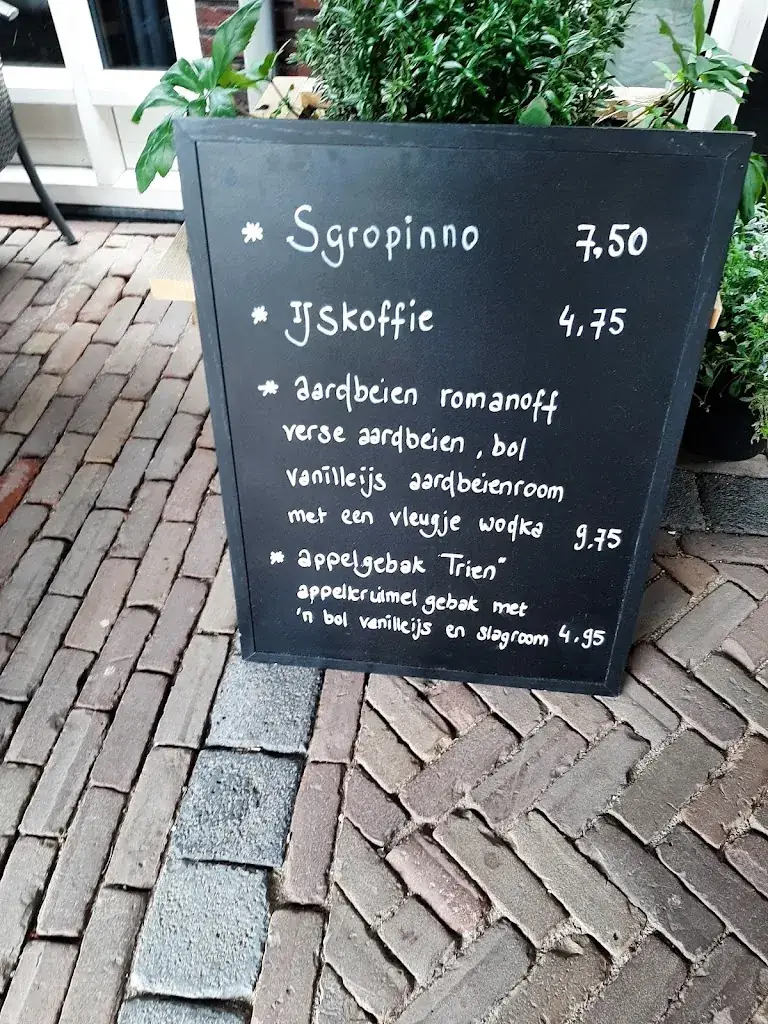 * Sgropinno 7,50
* IJskoffie 4,75
* aardbeien romanoff
verse aardbeien, bol
vanilleijs aardbeienroom
met een vleugje wodka 9,75
* appelgebak Trien"
appelkruimel gebak met
'n bol vanilleijs en slagroom 4,95